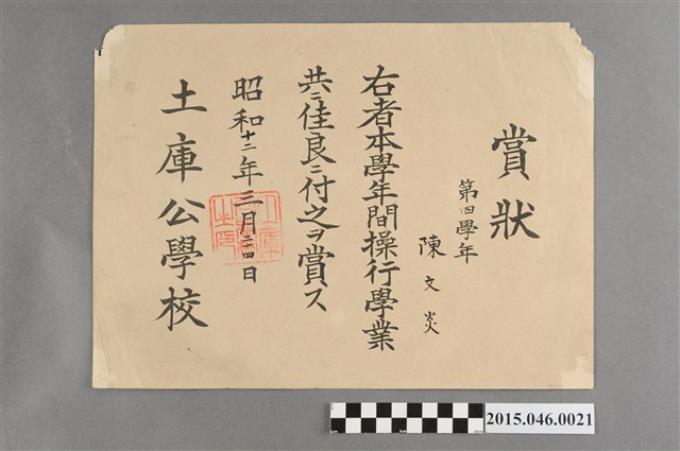 賞狀
第四學年
陳文炎
右者本學年間操行學業
共ニ佳良ニ付之ヲ賞ス
昭和十二年三月二四日
土庫公學校
2015.046.0021